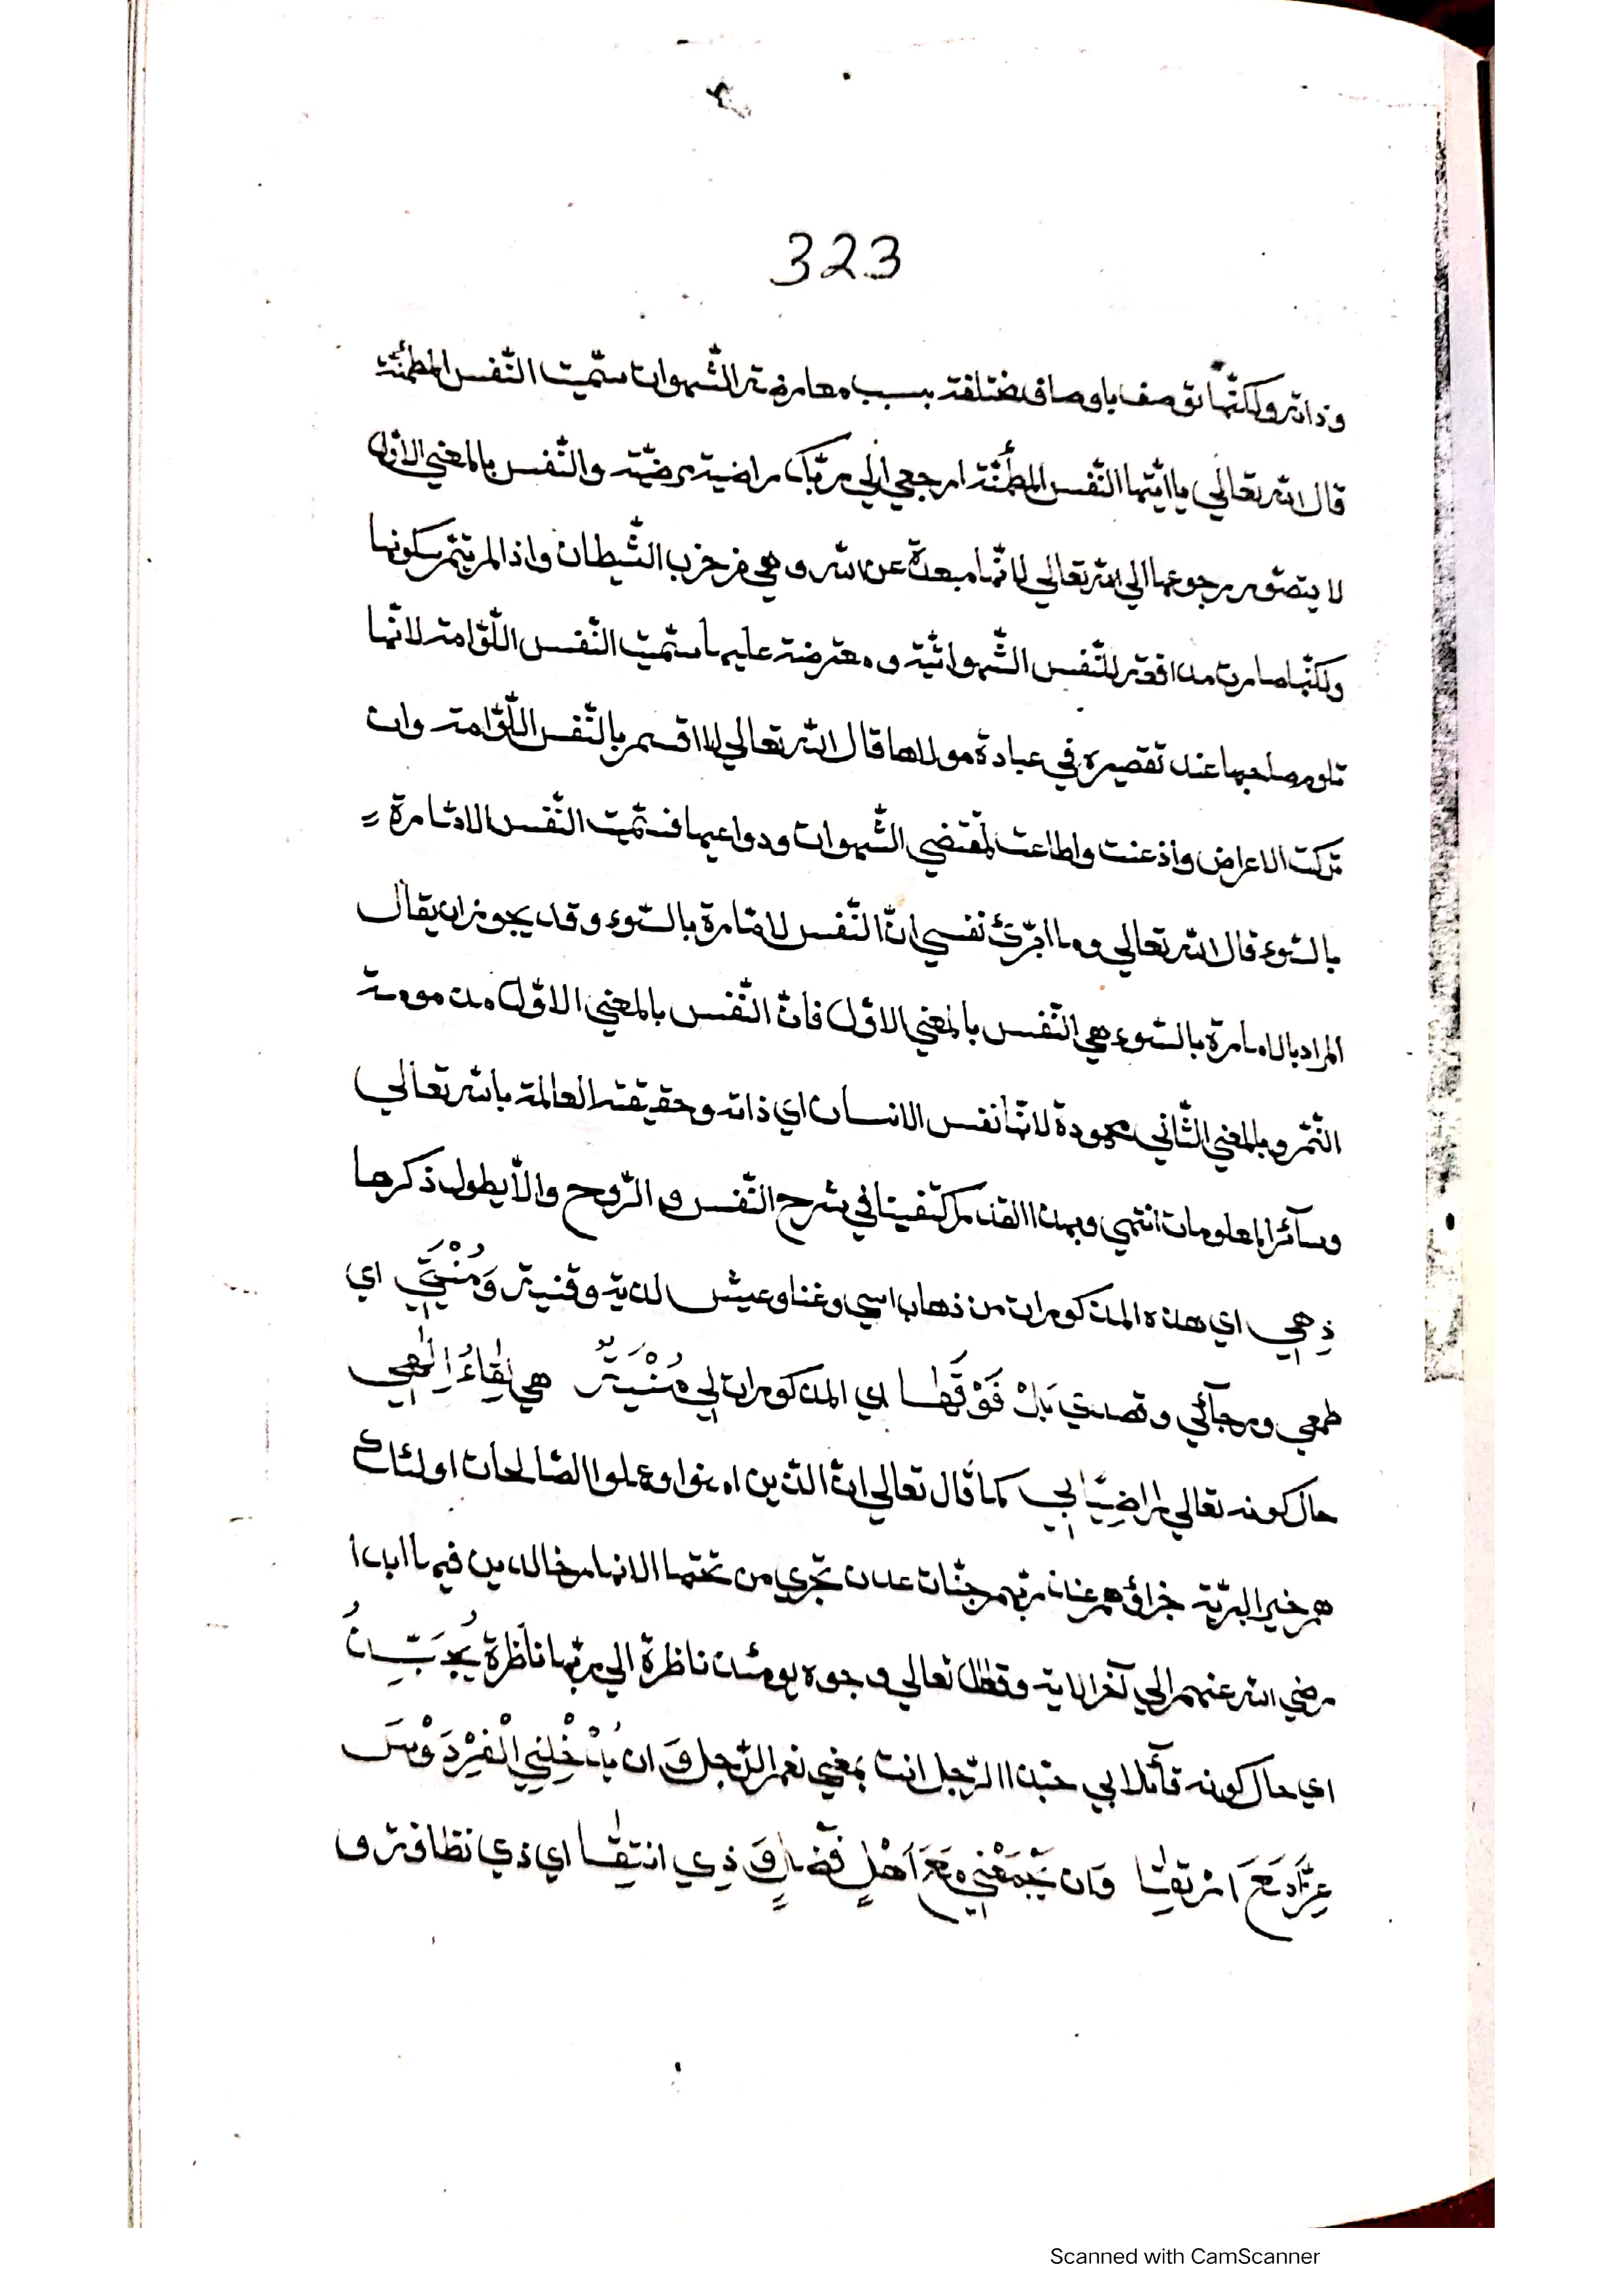 323
وذاته ولكنّها توصف باوصاف مختلفة بسبب معارضة الشّهوات سمّيت النّفس المطمئنّة
قال الله تعالي يا ايّتها النّفس المطمئنّة ارجعي الي ربّك راضية مرضيّة والنّفس بالمعني الاوّل
لا يتصوّر رجوعها الي الله تعالي لانّها مبعدة عن الله وهي من حزب الشّيطان واذا لم يتمّ سكونها
ولكنّها صارت مدافعة للنّفس الشّهوانيّة ومعترضة عليها سمّيت النّفس اللّوّامة لانّها
تلوم صاحبها عند تقصيره في عبادة مولاها قال الله تعالي لا اقسم بالنّفس اللّوّامة وان
تركت الاعراض واذعنت واطاعت لمقتضي الشّهوات ودواعيها فسمّيت النّفس الامّارة
بالسّوء قال الله تعالي وما ابرّئ نفسي انّ النّفس لامّارة بالسّوء وقد يجوز ان يقال
المراد بالامارة بالسّوء هي النّفس بالمعني الاوّل فانّ النّفس بالمعني الاوّل مذمومة
الذّمّ وبالمعني الثّاني محمودة لانّها نفس الانسان اي ذاته وحقيقته العالمة بالله تعالي
وسآئر المعلومات انتهي وبهذا القدر اكتفينا في شرح النّفس والرّوح والّا يطول ذكرها
ذِهِي اي هذه المذكورات من ذهاب اسمي وغنا وعيش لذية وقنية وَمُنْيَتِي اي
طمعي ورجآئي وقصدي بَلْ فَوْقَهَا اي المذكورات لِي مُنْيَةٌ هي لِقَاءُ اِلٰهِي
حال كونه تعالي رَاضِيًا بِي كما قال تعالي انّ الّذين امنوا وعملوا الصّالحات اولئك
هم خير البريّة جزاؤهم عند ربّهم جنّات عدن تجري من تحتها الانهار خالدين فيها ابدا
رضي الله عنهم الي آخر الاية وقال تعالي وجوه يومئذ ناظرة الي ربّها ناظرة
اي حال كونه قآئلا بي حبّذا الرّجل انت بمعني نعم الرّجل وَ ان يُدْخِلَنِي الْفِرْدَوْسَ
عِزًّا مَعَ ارْتِقَا وَان يَجْمَعَنِي مَعَ اَهْلِ فَضْلٍ وَ ذِي انتِقَا اي ذي نظافة و
Scanned with CamScanner